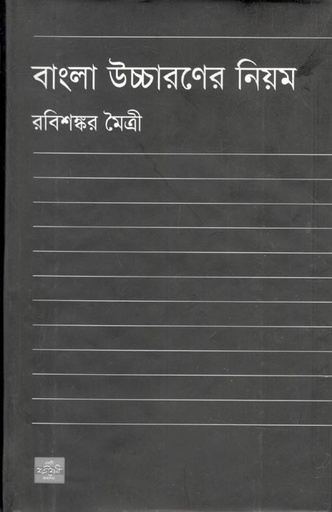 বাংলা উচ্চারণের নিয়ম
রবিশঙ্কর মৈত্রী